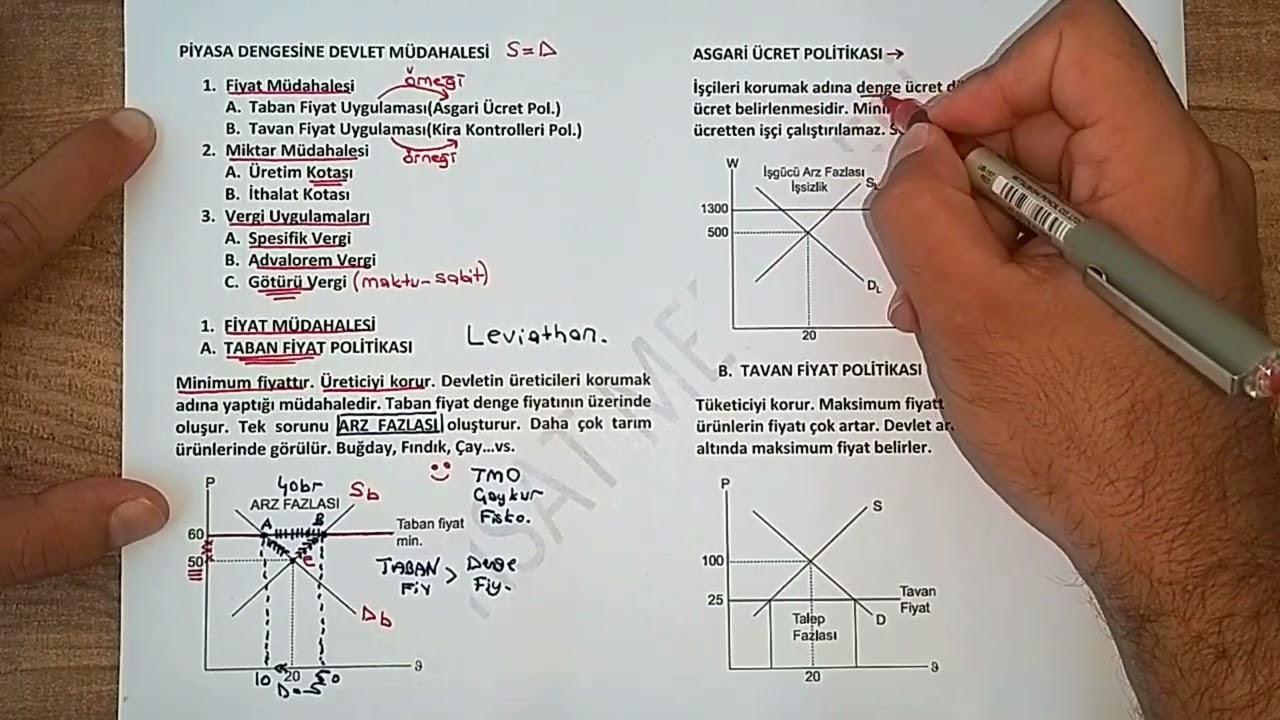 PİYASA DENGESİNE DEVLET MÜDAHALESİ S=D
1. Fiyat Müdahalesi örneği
A. Taban Fiyat Uygulaması(Asgari Ücret Pol.)
B. Tavan Fiyat Uygulaması(Kira Kontrolleri Pol.)
2. Miktar Müdahalesi örneği
A. Üretim Kotası
B. İthalat Kotası
3. Vergi Uygulamaları
A. Spesifik Vergi
B. Advalorem Vergi
C. Götürü Vergi (maktu-sabit)
1. FİYAT MÜDAHALESİ
A. TABAN FİYAT POLİTİKASI
Leviathan.
Minimum fiyattır. Üreticiyi korur. Devletin üreticileri korumak
adına yaptığı müdahaledir. Taban fiyat denge fiyatının üzerinde
oluşur. Tek sorunu ARZ FAZLASI oluşturur. Daha çok tarım
ürünlerinde görülür. Buğday, Fındık, Çay...vs.
P
40br
ARZ FAZLASI
Sb
A B
60
Taban fiyat
min.
50
e
Db
10 20 50
ϑ
TMO
Çaykur
Fisko.
TABAN FİY > Denge Fiy.
ASGARİ ÜCRET POLİTİKASI →
İşçileri korumak adına denge ücret
ücret belirlenmesidir.
ücretten işçi çalıştırılamaz.
W
İşgücü Arz Fazlası
İşsizlik
1300
500
DL
20
B. TAVAN FİYAT POLİTİKASI
Tüketiciyi korur. Maksimum
ürünlerin fiyatı çok artar. Devlet
altında maksimum fiyat belirler.
P
S
100
25
Tavan
Fiyat
Talep
Fazlası
D
20
ϑ